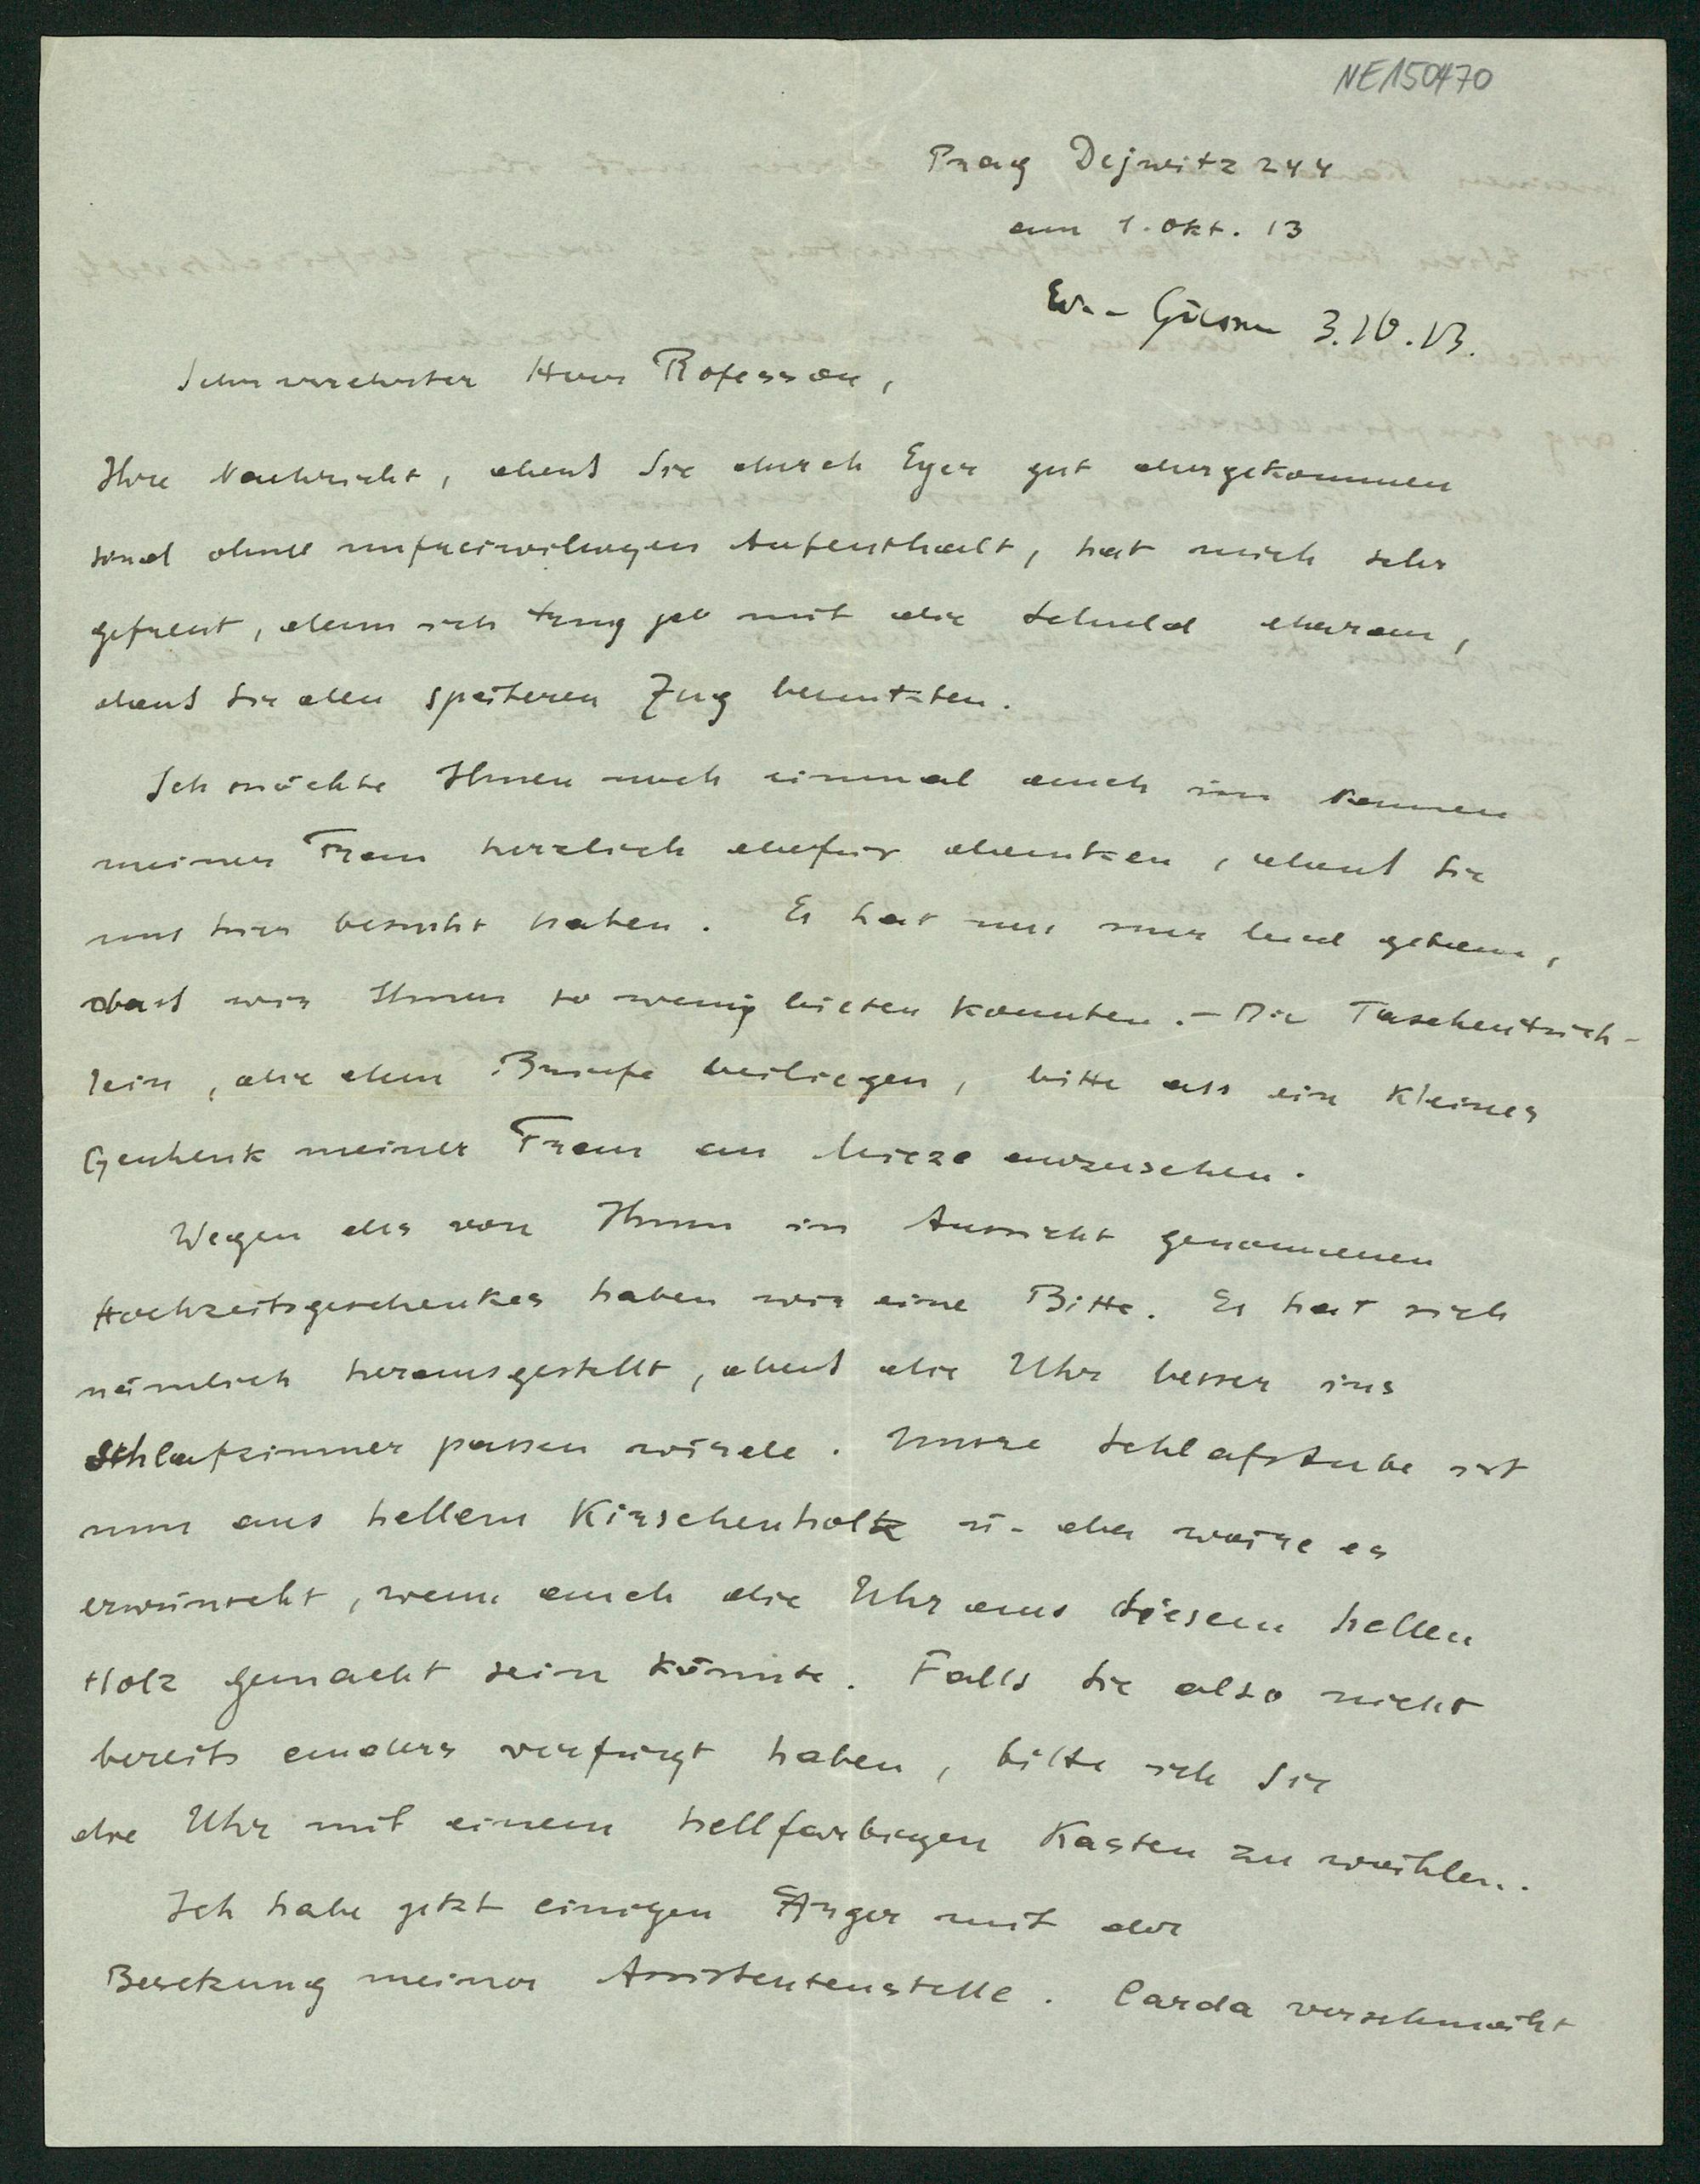 NE150470
Prag Dejwitz 244
am 1. Okt. 13
3.10.13.
Sehr verehrter Herr Professor,
Ihre Nachricht, dass Sie durch Eger gut durgekommen
sind ohne unfreiwilligen Aufenthalt, hat mich sehr
gefreut, denn ich trug ja mit die Schuld daran,
dass Sie den späteren Zug benutzten.
Ich möchte Ihnen noch einmal auch im Namen
meiner Frau herzlich dafür danken, dass Sie
uns hier besucht haben. Es hat uns nur leid getan,
dass wir Ihnen so wenig bieten konnten. - Die Taschentüch-
lein, die dem Briefe beiliegen, bitte als ein kleines
Geschenk meiner Frau an Mieze anzusehen.
Wegen des von Ihnen in Aussicht genommenen
Hochzeitsgeschenkes haben wir eine Bitte. Es hat sich
nämlich herausgestellt, dass die Uhr besser ins
Schlafzimmer passen würde. Unsre Schlafstube ist
nun aus hellem Kirschenholz u. da wäre es
erwünscht, wenn auch die Uhr aus diesem hellen
Holz gemacht sein könnte. Falls Sie also nicht
bereits anders verfügt haben, bitte ich Sie
die Uhr mit einem hellfarbigen Kasten zu wählen.
Ich habe jetzt einigen Ärger mit der
Besetzung meiner Assistentenstelle. Carda verschmäht